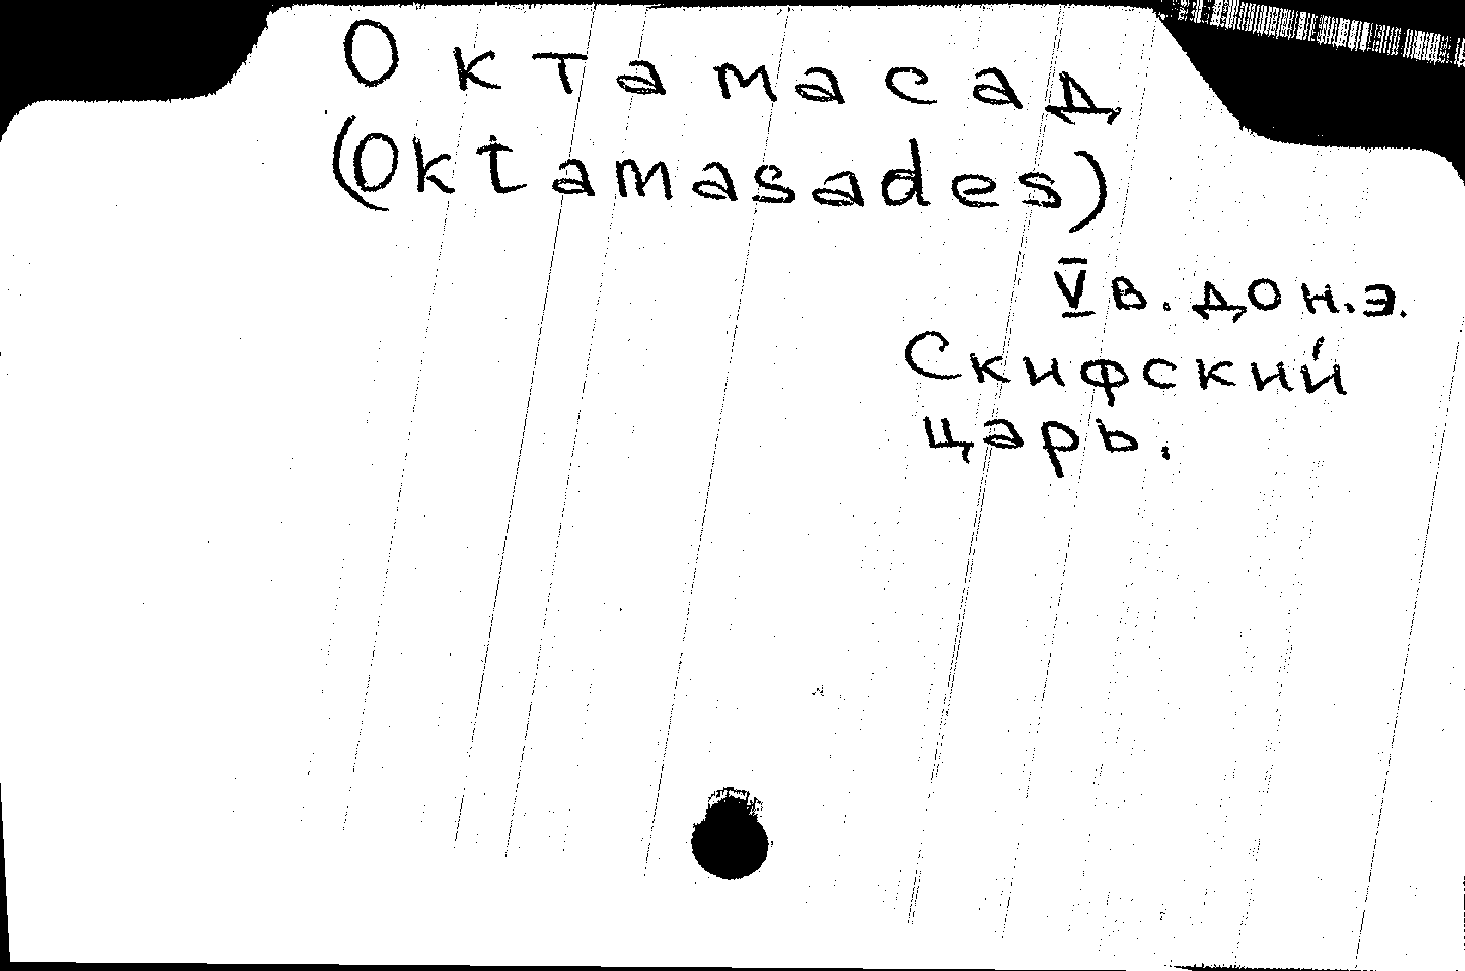 Октамасад
(Oktamasades)
V в. до н.э.
Скифский
царь.